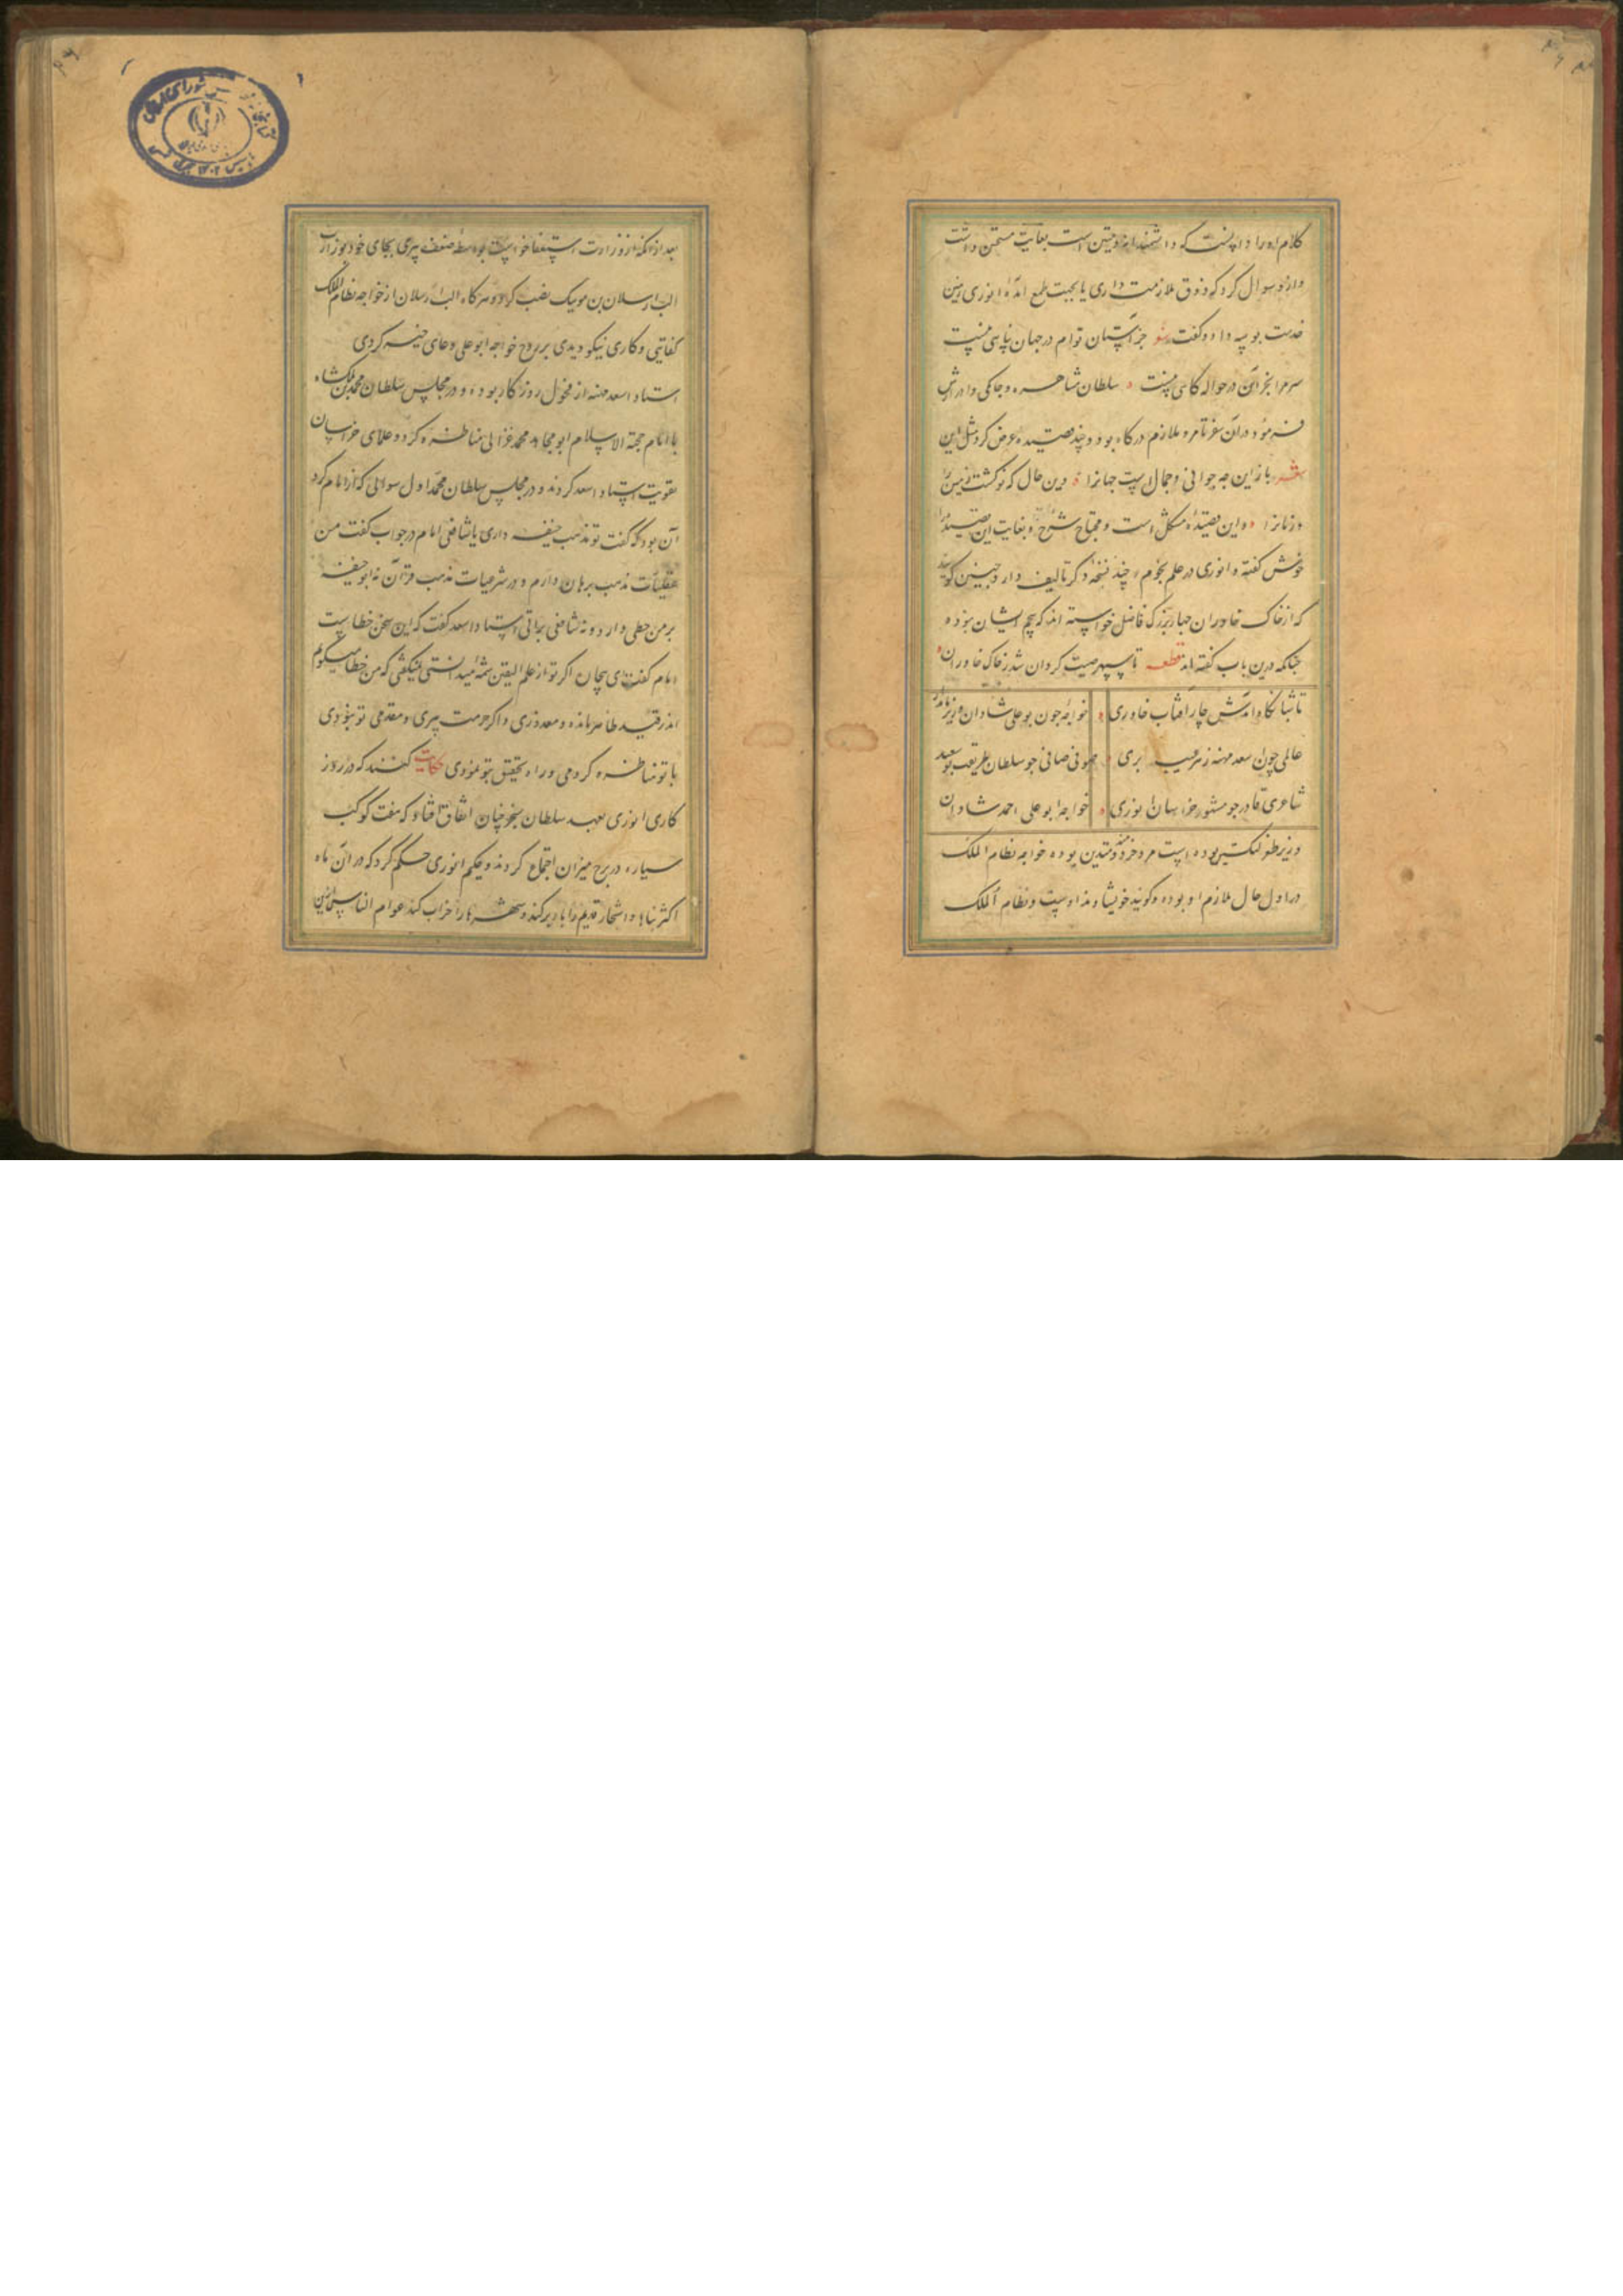 کلام او را دانست که دانشمندانه و متین است بغایت مستحسن داشت
و ازو سوال کرد که ذوق ملازمت داری یا بجهت طمع آمدهٔ انوری زمین
خدمت بوسه داد و گفت شعر جز آستان توام در جهان پناهی نیست
سر مرا بجز این در حواله گاهی نیست سلطان مشاهره و جامگی و ادرارش
فرمود و در آن سفر تا مرو ملازم درگاه بود و چند قصیده عرض کرد مثل این
شعر باز این چه جوانی و جمال است جهانرا وین حال که نو گشت زمین را
و زمانرا و این قصیده مشکل است و محتاج شرح و بغایت این قصیده را
خوش گفته و انوری در علم نجوم چند نسخه دگر تالیف دارد چنین گویند
که از خاک خاوران چهار بزرگ فاضل خواسته اند که پنجم ایشان نبوده
چنانکه درین باب گفته اند قطعه تا سپهر صیت گردان شد ز خاک خاوران
تا شبانگاه آمدش چار آفتاب خاوری خواجه چون بوعلی شادان وزیر نامور
عالمی چون اسعد مهنه ز هر عیب بری صوفی صافی چو سلطان طریقت بوسعید
شاعری قادر چو مشهور خراسان انوری خواجه ابو علی احمد شادان
وزیر طغرلبک بن بوده است مرد خردمند و متدین بوده خواجه نظام الملک
در اول حال ملازم او بوده و گویند خویشاوند اوست و نظام الملک
بعد از آنکه از وزارت استعفا خواست بواسطه ضعف پیری بجای خود بوزارت
الب ارسلان بن موبیک نصب کرد و هر گاه الب ارسلان از خواجه نظام الملک
کفایتی و کاری نیکو دیدی بر روح خواجه ابو علی دعای خیر کردی
استاد اسعد مهنه از فحول روزگار بوده و در مجلس سلطان محمد بن ملکشاه
با امام حجة الاسلام ابو محامد محمد غزالی مناظره کرد و علمای خراسان
تقویت استاد اسعد کردند و در مجلس سلطان محمد اول سوالی که از امام کرد
آن بود که گفت تو مذهب حنیفه داری یا شافعی امام در جواب گفت من
عقلیات مذهب برهان دارم و در شرعیات مذهب قرآن نه ابو حنیفه
بر من خطی دارد و نه شافعی براتی استاد اسعد گفت که این سخن خطاست
امام گفت ای بیچاره اگر تو از علم الیقین شمهٔ میدانستی نمیگفتی که من خطا میگویم
اما در قید ظاهر مانده و معذوری و اگر حرمت پیری و مقدمی تو نبودی
با تو مناظره کردمی و راه تحقیق بتو نمودی حکایت گفتند که در روز
کاری انوری بعهد سلطان سنجر چنان اتفاق افتاد که هفت کوکب
سیاره در برج میزان اجتماع کردند و حکیم انوری حکم کرد که در آن ماه
اکثر بناها و اشجار قدیم را باد برکند و شهرها را خراب کند عوام الناس